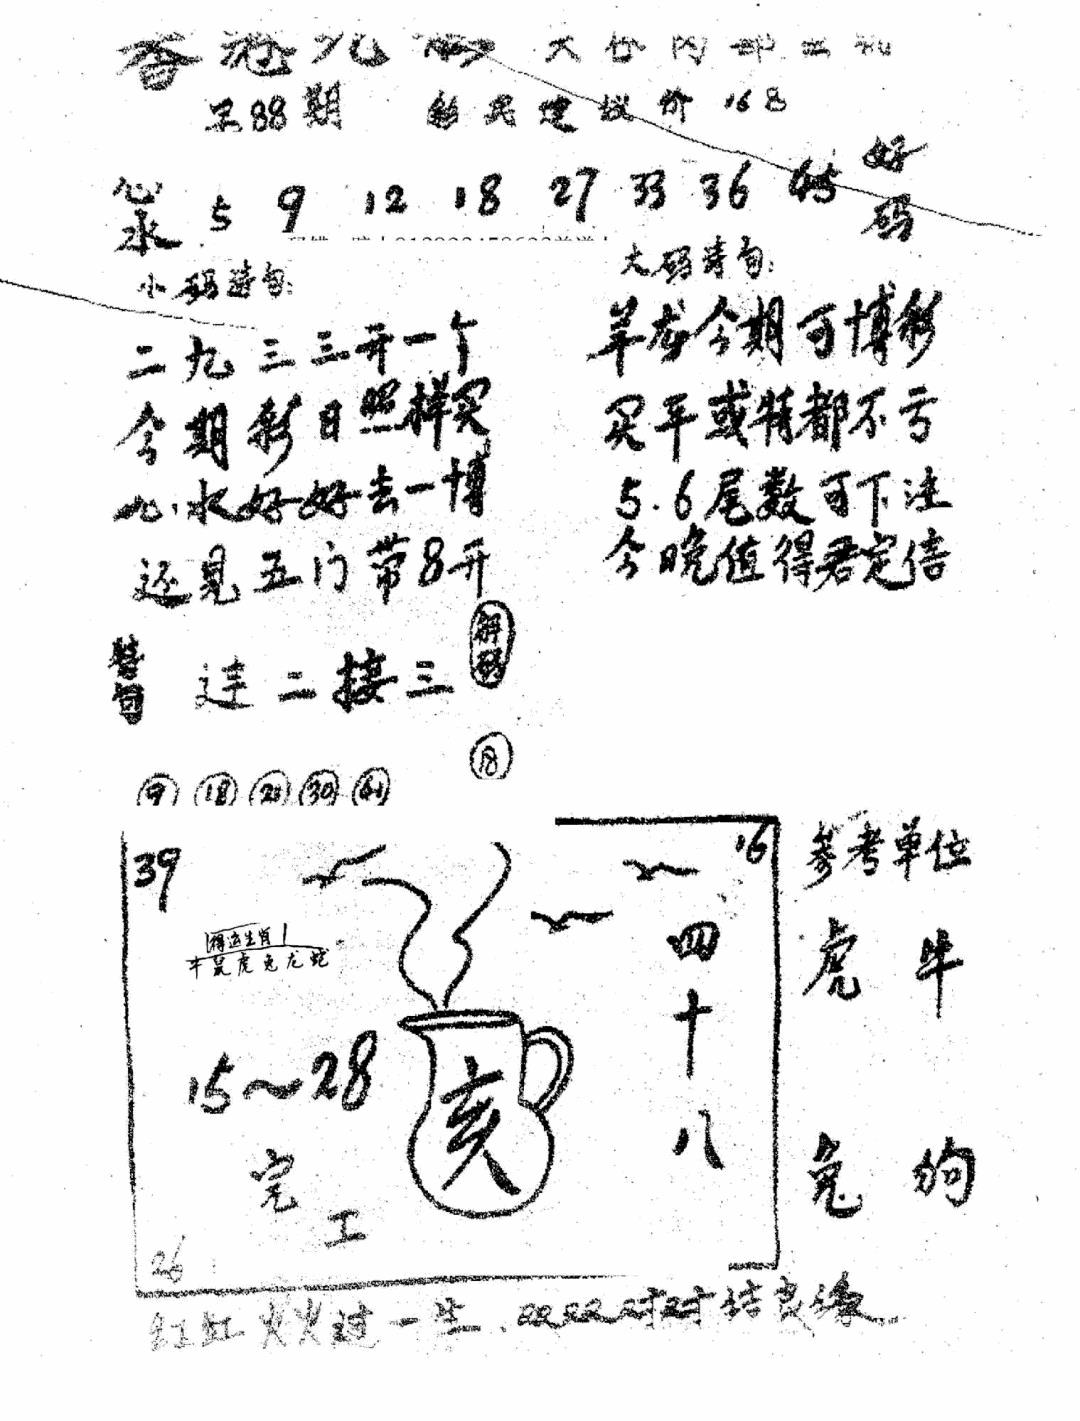 香港九 大台内部
88期 彩民建议价168
心水 5 9 12 18 27 33 36 45 好码
小码诗句:
二九三三开一个
今期彩日照样买
水好好去一博
还见五门带8开
大码诗句:
羊龙今期可博彩
买平或特都不亏
5.6尾数可下注
今晚值得君定倍
连二接三
解码
18
9 18 30
39 16
得运生肖
牛鼠虎兔龙蛇
15～28
亥
四十八
完工
26
参考单位
虎 牛
兔 狗
红红火火过一生、双双对对结良缘